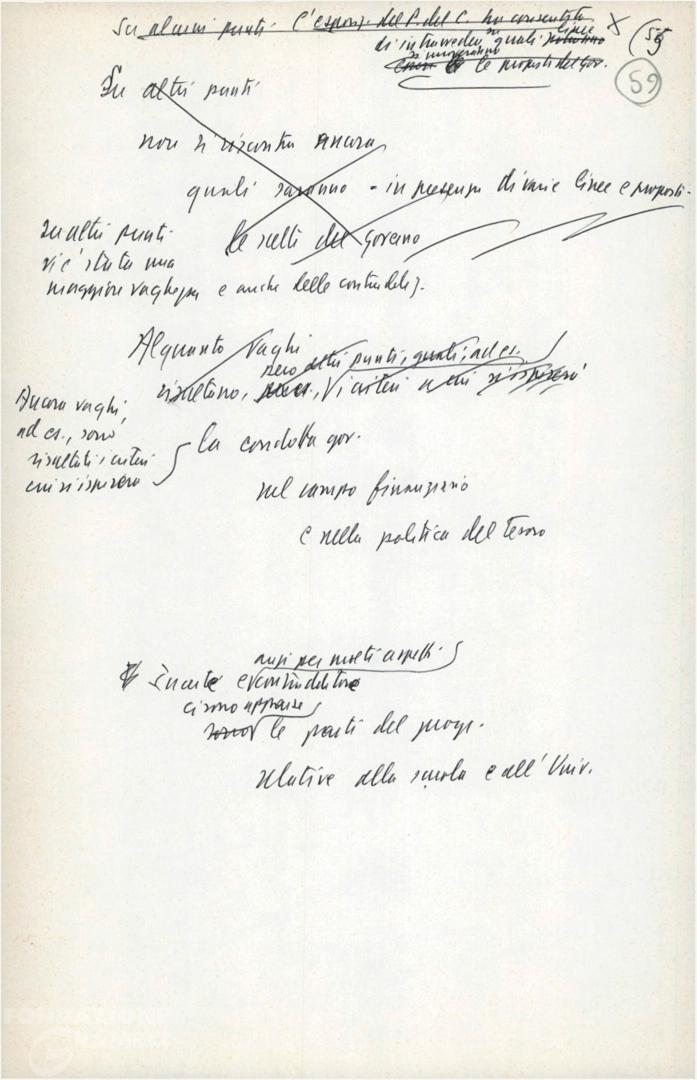 Su alcuni punti l'esposiz. del P. del C. ha consentito
di intravedere su quali linee
si muoveranno le proposte del Gov.
59
59
Su altri punti
non si riscontra ancora
quali saranno - in presenza di varie linee e proposte -
le scelte del Governo
Su altri punti
vi è stata una
maggiore vaghezza e anche delle contraddiz.
Alquanto vaghi
però altri punti, quali, ad es.
risultano, i criteri a cui si ispirerà
Ancora vaghi,
ad es., sono
risultati i criteri
cui si ispirerà
la condotta gov.
nel campo finanziario
e nella politica del Tesoro
anzi per molti aspetti
Incerte e contraddittorie
ci sono apparse
sono le parti del progr.
relative alla scuola e all'Univ.
FONDAZIONE